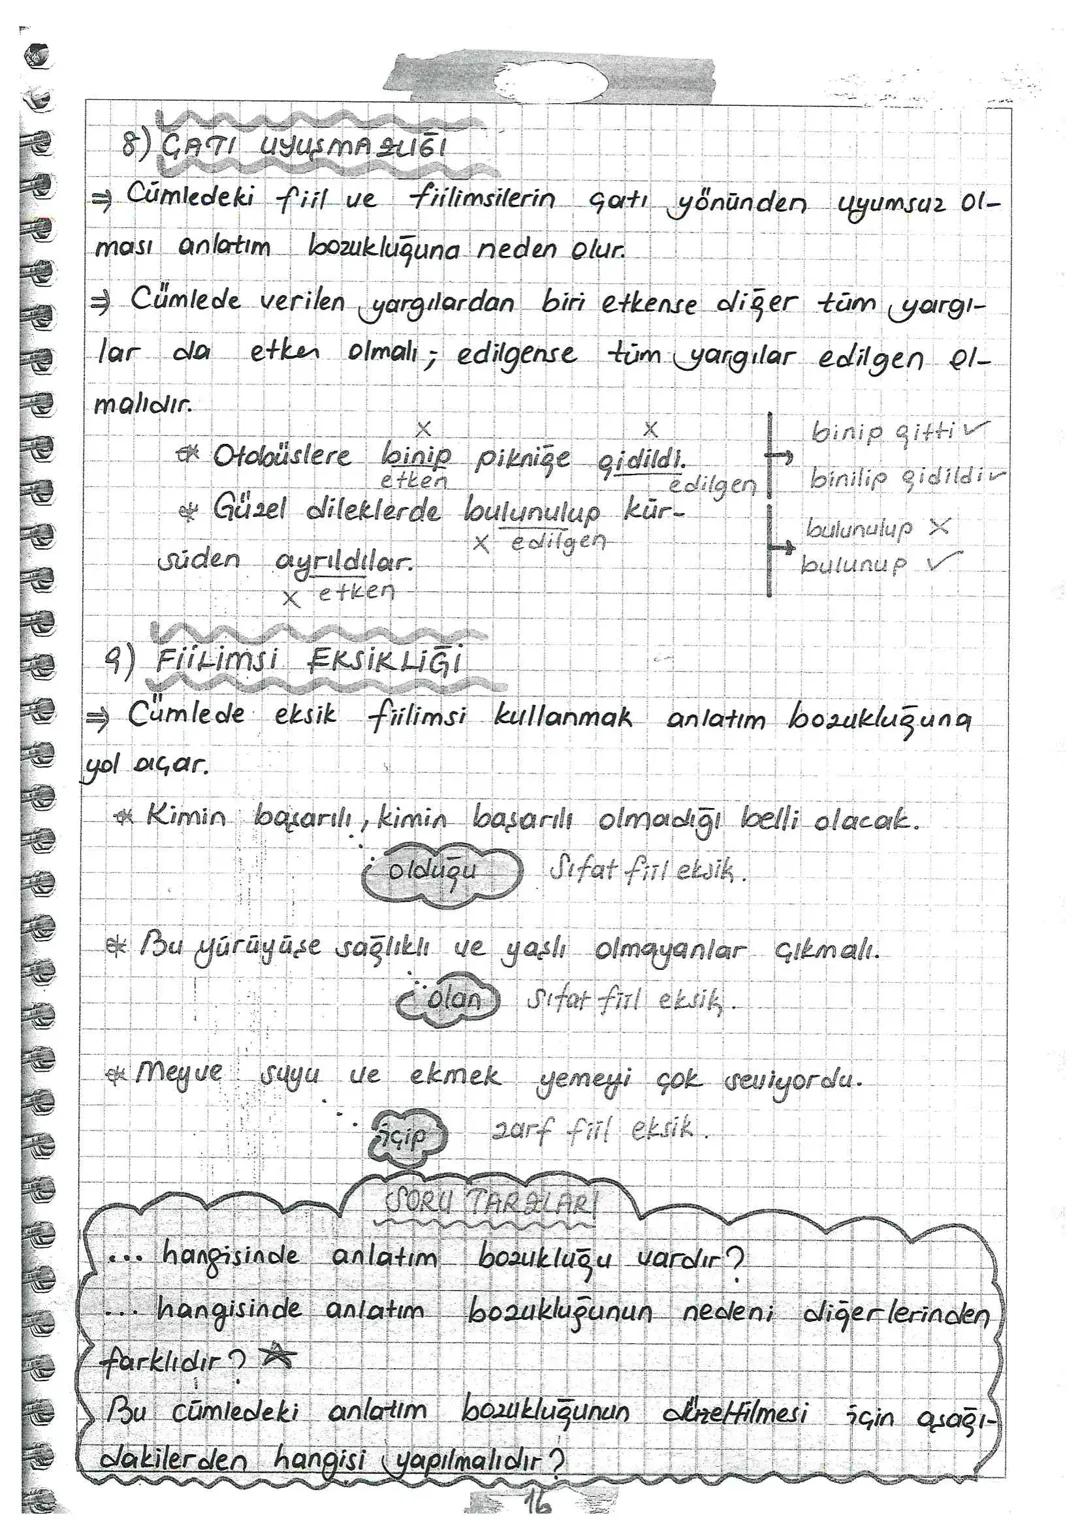 8) ÇATI UYUŞMAZLIĞI
⇒ Cümledeki fiil ve fiilimsilerin çatı yönünden uyumsuz ol-
ması anlatım bozukluğuna neden olur.
⇒ Cümlede verilen yargılardan biri etkense diğer tüm yargı-
lar da etken olmalı; edilgense tüm yargılar edilgen ol-
malıdır.
x x
* Otobüslere binip pikniğe gidildi.
etken edilgen
binip gitti ✓
binilip gidildi ✓
* Güzel dileklerde bulunulup kür-
x edilgen
süden ayrıldılar.
x etken
bulunulup x
bulunup ✓
9) FİİLİMSİ EKSİKLİĞİ
⇒ Cümlede eksik fiilimsi kullanmak anlatım bozukluğuna
yol açar.
* Kimin başarılı, kimin başarılı olmadığı belli olacak.
olduğu Sıfat fiil eksik.
* Bu yürüyüşe sağlıklı ve yaşlı olmayanlar çıkmalı.
olan Sıfat fiil eksik.
* Meyve suyu ve ekmek yemeyi çok seviyordu.
içip zarf fiil eksik.
SORU TARZLARI
... hangisinde anlatım bozukluğu vardır?
... hangisinde anlatım bozukluğunun nedeni diğerlerinden
farklıdır? ☆
Bu cümledeki anlatım bozukluğunun düzeltilmesi için aşağı-
dakilerden hangisi yapılmalıdır?
16